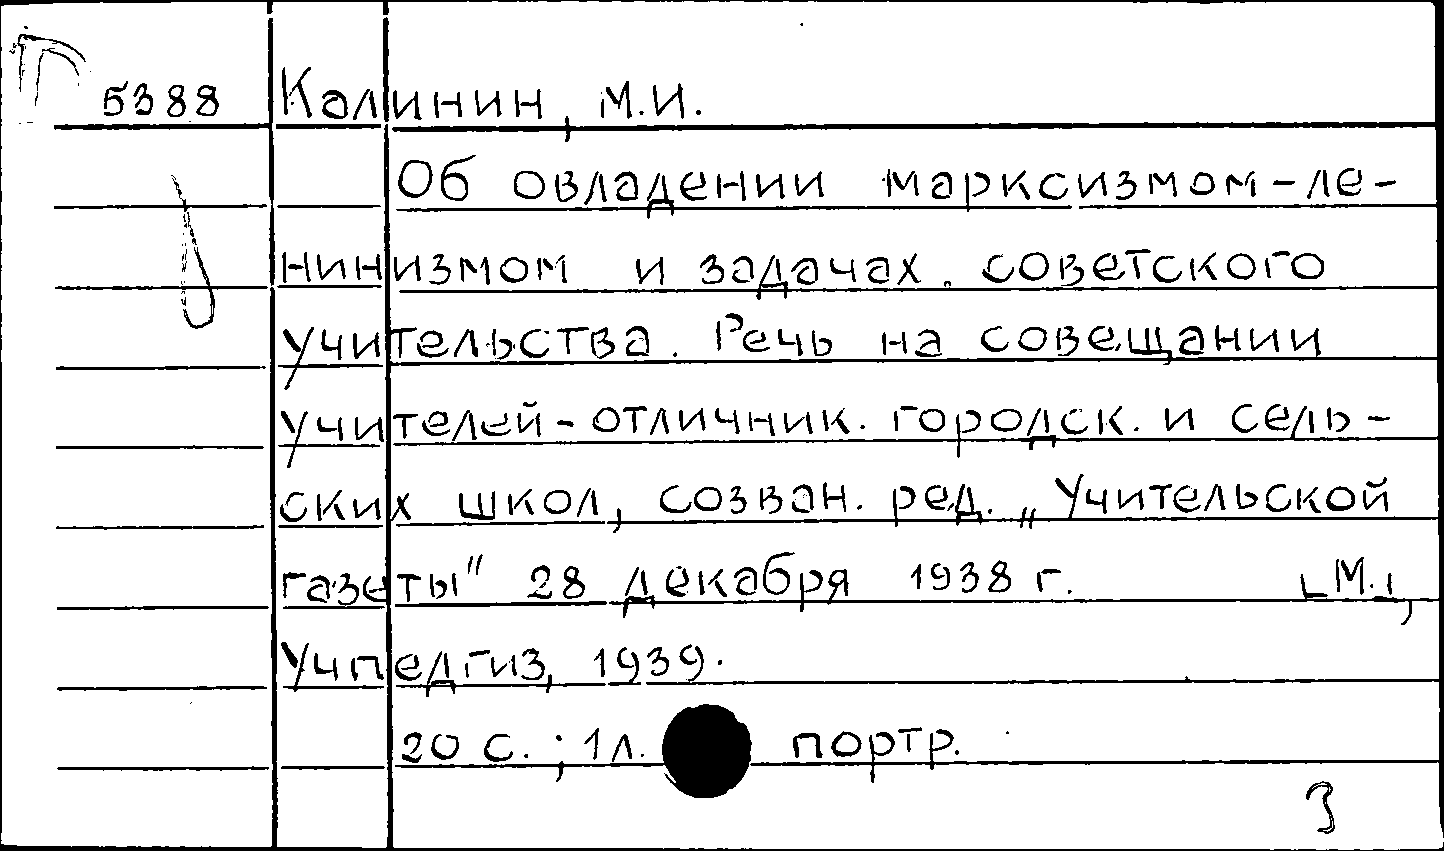 П
5388 Калинин, М.И.
Об овладении марксизмом-ле-
нинизмом и задачах советского
учительства. Речь на совещании
учителей-отличник. городск. и сель-
ских школ, созван. ред. „Учительской
газеты" 28 декабря 1938 г. [М.],
Учпедгиз, 1939.
20 с.; 1 л. портр.
З